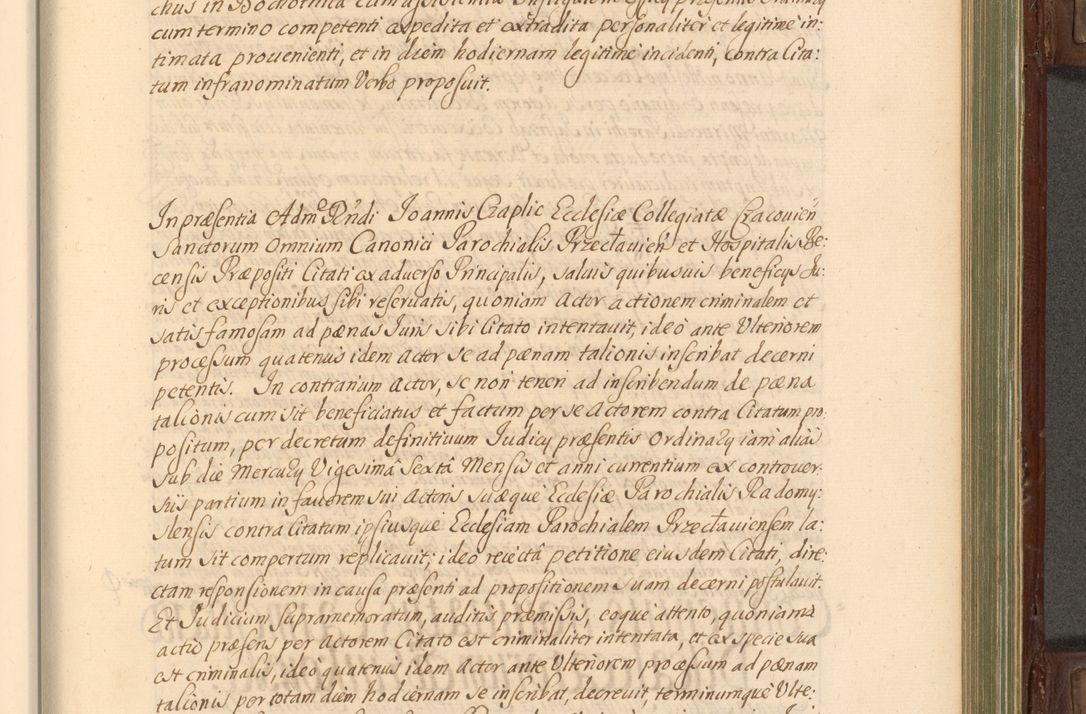 chus in Bochothica cum
cum termino competenti expedita et extradita personaliter et legitime in:
timata provenienti, et in diem hodiernam legitime incidenti, Contra Cita:
tum infranominatum Verbo proposuit.
In præsentia Admo Rndi Joannis Czaplic Ecclesiæ Collegiatæ Cracovien
Sanctorum Omnium Canonici Parochialis Przecłavien et Hospitalis Be:
censis Præpositi Citati ex adverso Principalis, salvis quibusvis beneficijs Ju:
ris et exceptionibus sibi reservatis, quoniam Actor actionem criminalem et
satis famosam ad pænas Juris sibi Citato intentavit, ideo ante Ulteriorem
processum quatenus idem Actor se ad pænam talionis inscribat decerni
petentis. In contrarium Actor, se non teneri ad inscribendum de pæna
talionis cum sit beneficiatus et factum per se Actorem contra Citatum pro:
positum, per decretum definitivum Judicij præsentis Ordinarij iam alias
sub die Mercurij Vigesima Sexta Mensis et anni currentium ex controver:
siis partium in favorem sui Actoris suæque Ecclesiæ Parochialis Radomy:
slensis contra Citatum ipsiusque Ecclesiam Parochialem Przecłaviensem la:
tum sit compertum replicavit; ideo reiectâ petitione eiusdem Citati, dire:
ctam responsionem in causa præsenti ad propositionem suam decerni postulavit.
Et Judicium supramemoratum, auditis præmissis, eoque attento, quoniam
actio præsens per Actorem Citato est criminaliter intentata, et ex specie sua
est criminalis, ideo quatenus idem Actor ante Ulteriorem processum ad pænam
talionis per totam diem hodiernam se inscribat, decrevit, terminumque Ulte: